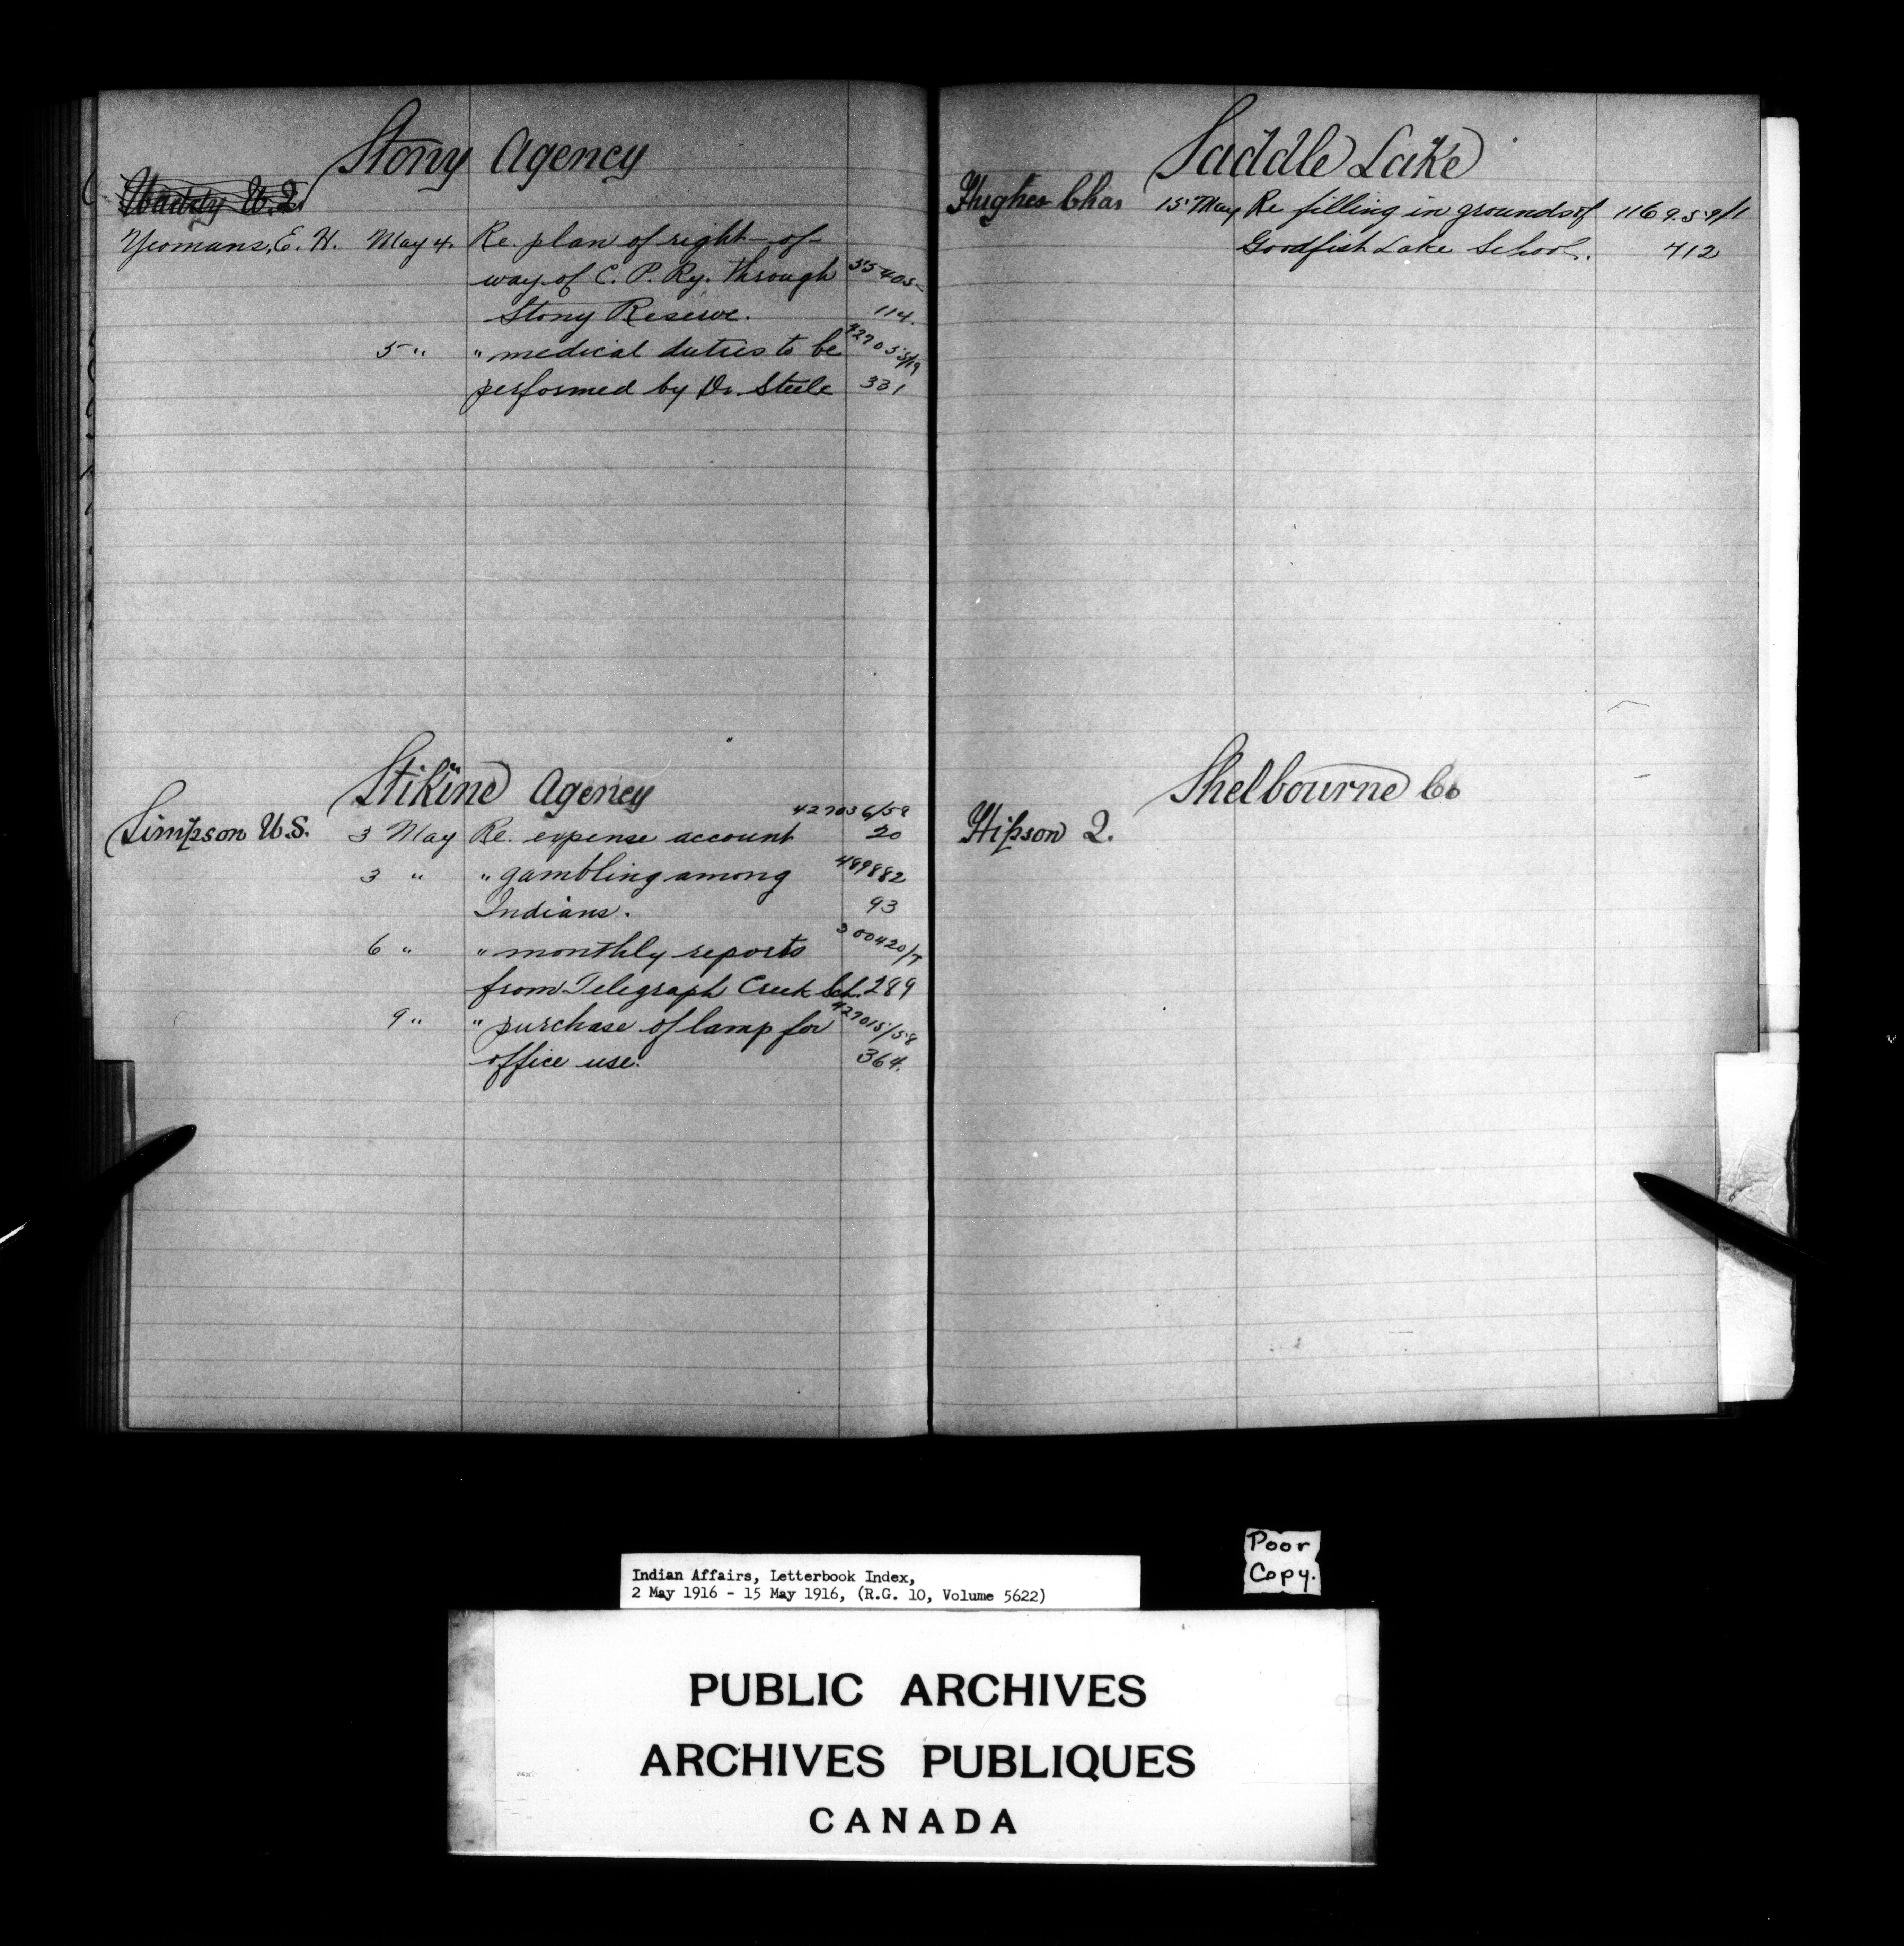 Stony Agency
Waddy
Yeomans, E. H. May 4. Re. plan of right-of-
way of C. P. Ry. through 55405-
Stony Reserve. 114.
5 " " medical duties to be 427035/19
performed by Dr. Steele 331
Stikine Agency
427036/58
Simpson W.S. 3 May Re. expense account 20
3 " " gambling among 489882
Indians. 93
6 " " monthly reports 300420/7
from Telegraph Creek Sch. 289
9 " " purchase of lamp for 427015/58
office use. 364.
Saddle Lake
Hughes Chas 15 May Re filling in grounds of 11695-9/1
Goodfish Lake School. 712
Shelbourne Co
Hipson J.
Poor
Copy.
Indian Affairs, Letterbook Index,
2 May 1916 - 15 May 1916, (R.G. 10, Volume 5622)
PUBLIC ARCHIVES
ARCHIVES PUBLIQUES
CANADA